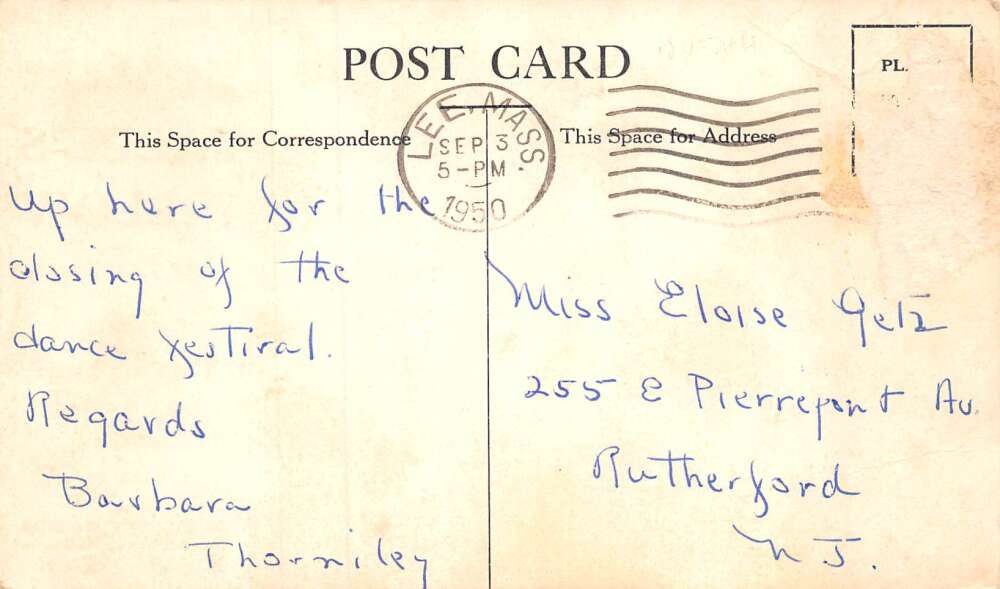 POST CARD
PL.
This Space for Correspondence
This Space for Address
LEE, MASS.
SEP 3
5-PM
1950
Up here for the
closing of the
dance festival.
Regards
Barbara
Thorniley
Miss Eloise Getz
255 E Pierrepont Av.
Rutherford
N J.